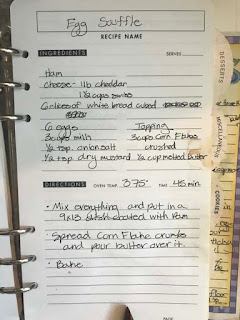 Egg Souffle
RECIPE NAME
INGREDIENTS SERVES
Ham
Cheese - 1lb cheddar
1 1/2 cups
6 slices of white bread cubed
6 eggs Topping
3 cups milk 3 cups Corn Flakes
1/2 tsp onion salt crushed
1/2 tsp dry mustard 1/2 cup melted butter
DIRECTIONS OVEN TEMP 375° TIME 45 min
• Mix everything and put in a
9x13 dish coated with Pam
• Spread Corn Flake crumbs
and pour butter over it.
• Bake
PAGE
DESSERTS
MISCELLANEOUS
COOKIES